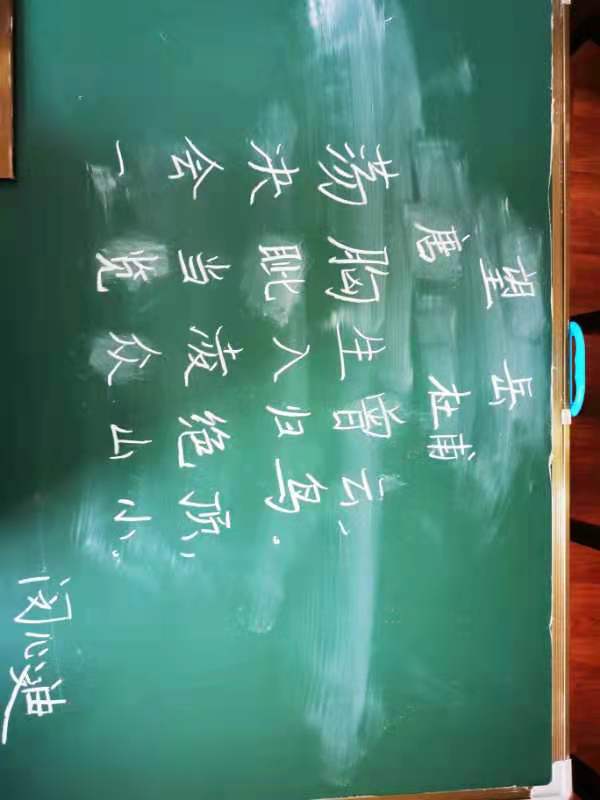 望岳
唐 杜甫
荡胸生曾云，
决眦入归鸟。
会当凌绝顶，
一览众山小。
闵心迪